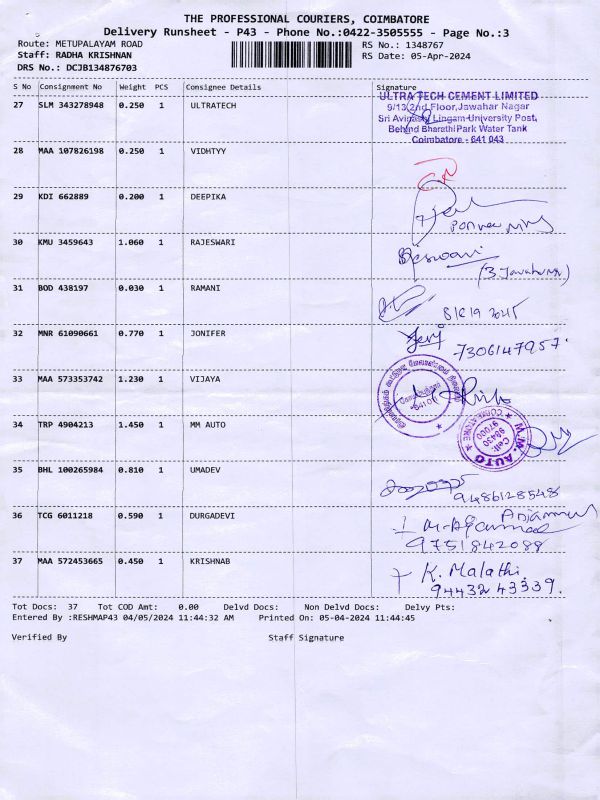 THE PROFESSIONAL COURIERS, COIMBATORE
Delivery Runsheet - P43 - Phone No.:0422-3505555 - Page No.:3
Route: METUPALAYAM ROAD RS No.: 1348767
Staff: RADHA KRISHNAN RS Date: 05-Apr-2024
DRS No.: DCJB134876703
S No Consignment No Weight PCS Consignee Details Signature
27 SLM 343278948 0.250 1 ULTRATECH
ULTRA TECH CEMENT LIMITED
9/13,2nd Floor,Jawahar Nagar
Sri Avinashi Lingam University Post,
Behind Bharathi Park Water Tank
Coimbatore - 641 043
28 MAA 107826198 0.250 1 VIDHTYY
29 KDI 662889 0.200 1 DEEPIKA
30 KMU 3459643 1.060 1 RAJESWARI
31 BOD 438197 0.030 1 RAMANI
32 MNR 61090661 0.770 1 JONIFER
7306147957
33 MAA 573353742 1.230 1 VIJAYA
34 TRP 4904213 1.450 1 MM AUTO
M.M. AUTO
Cell:
98430
97000
35 BHL 100265984 0.810 1 UMADEV
9486128548
36 TCG 6011218 0.590 1 DURGADEVI
9751842088
37 MAA 572453665 0.450 1 KRISHNAB
K. Malathi
94432 43339.
Tot Docs: 37 Tot COD Amt: 0.00 Delvd Docs: Non Delvd Docs: Delvy Pts:
Entered By :RESHMAP43 04/05/2024 11:44:32 AM Printed On: 05-04-2024 11:44:45
Verified By Staff Signature